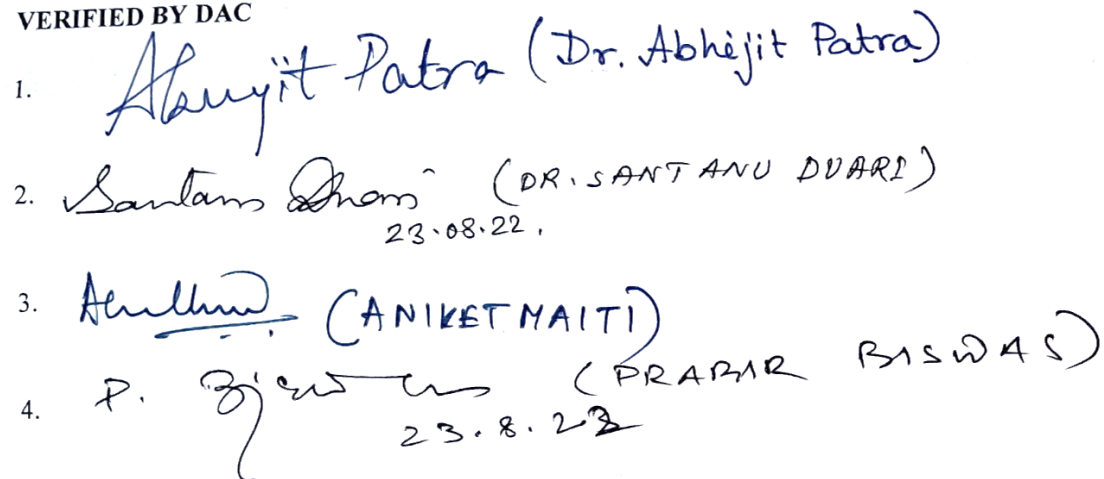 VERIFIED BY DAC
1. Abhijit Patra (Dr. Abhijit Patra)
2. Santanu Duari (DR. SANTANU DUARI)
23.08.22.
3. (ANIKET MAITI)
4. P. Biswas (PRABIR BISWAS)
23.8.22